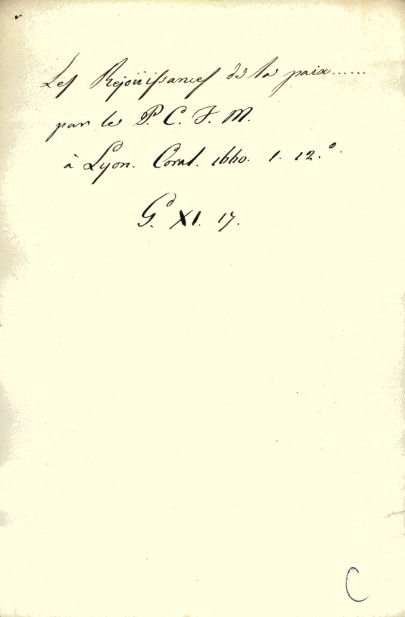 Les Rejoüissances de la paix......
par le P. C. F. M.
à Lyon. Coral. 1660. 1. 12.°
G.d XI. 17.
C